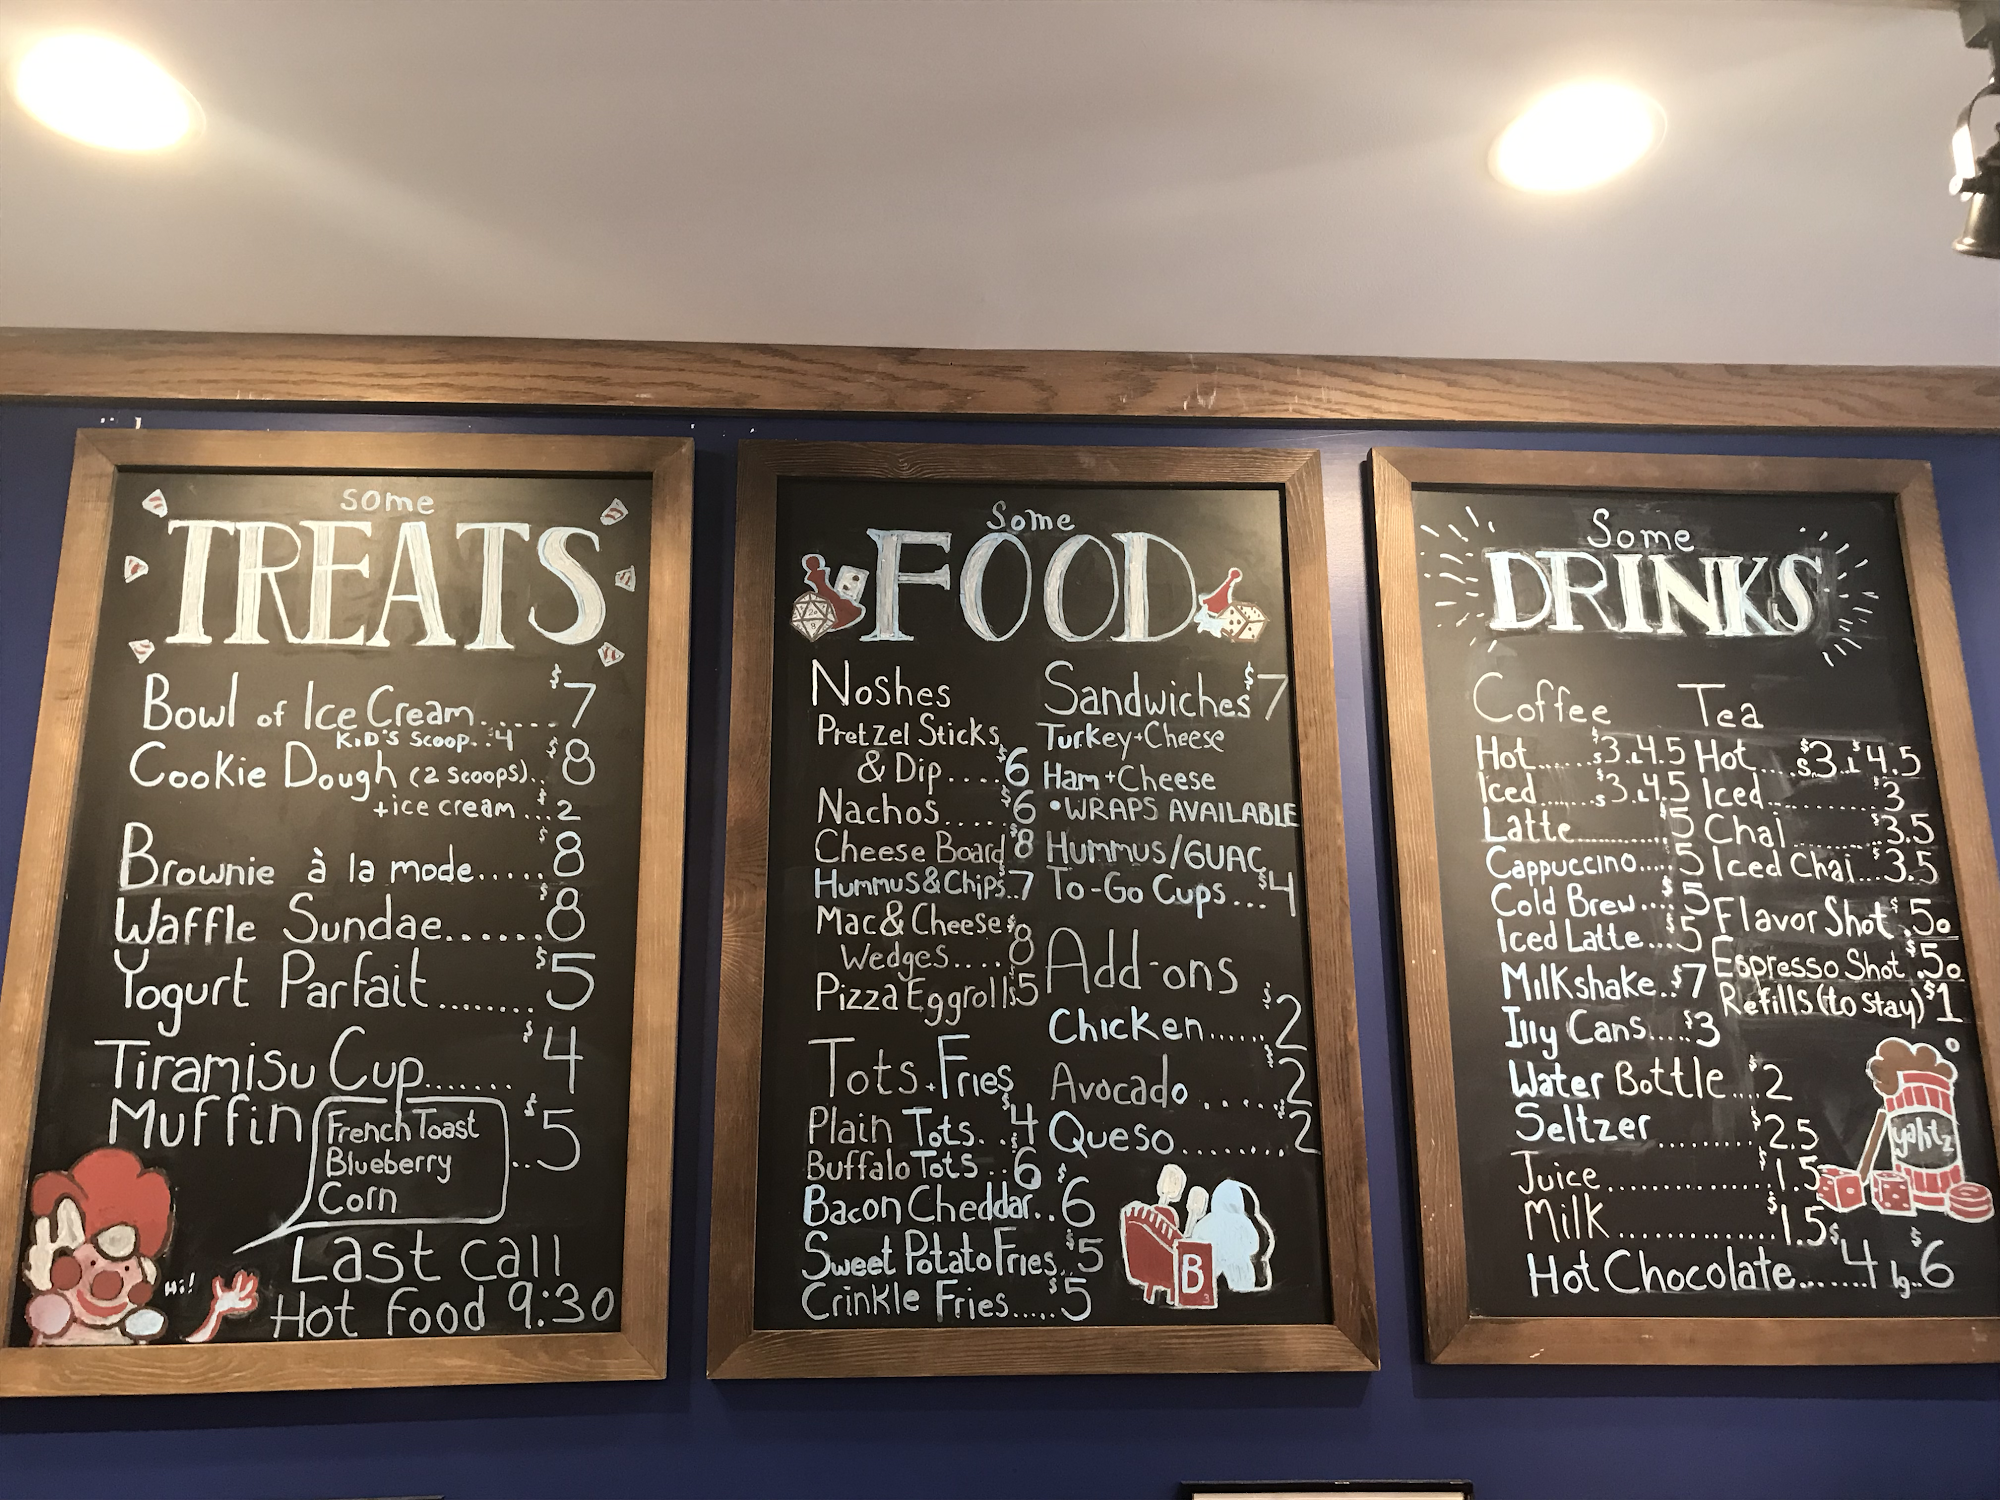 some
TREATS
Bowl of Ice Cream......$7
KID'S Scoop..$4
Cookie Dough (2 scoops)..$8
+ice cream...$2
Brownie à la mode.....$8
Waffle Sundae......$8
Yogurt Parfait.......$5
Tiramisu Cup.......$4
Muffin French Toast Blueberry Corn ..$5
Hi!
Last call
Hot food 9:30
Some
FOOD
Noshes
Pretzel Sticks
& Dip....$6
Nachos.....$6
Cheese Board $8
Hummus & Chips..$7
Mac & Cheese
Wedges....$8
Pizza Eggrolls $5
Tots + Fries
Plain Tots..$4
Buffalo Tots..$6
Bacon Cheddar..$6
Sweet Potato Fries..$5
Crinkle Fries.....$5
Sandwiches $7
Turkey + Cheese
Ham + Cheese
•WRAPS AVAILABLE
HUMMUS/GUAC
To-Go Cups...$4
Add-ons
Chicken......$2
Avocado.....$2
Queso........$2
B
Some
DRINKS
Coffee
Hot......s$3.L4.5
Iced......s$3.L4.5
Latte............$5
Cappuccino.....$5
Cold Brew....$5
Iced Latte...$5
Milkshake..$7
Illy Cans....$3
Water Bottle...$2
Seltzer.........$2.5
Juice.............$1.5
Milk..............$1.5
Hot Chocolate......$4 lg..$6
Tea
Hot....s$3.L$4.5
Iced..........$3
Chai.........$3.5
Iced Chai...$3.5
Flavor Shot $.50
Espresso Shot $.50
Refills (to stay) $1